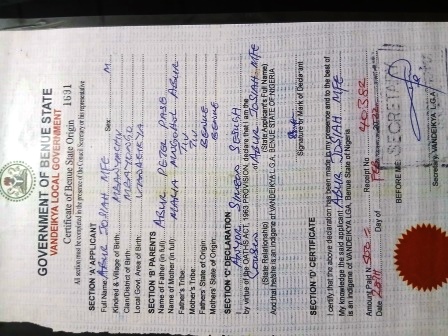 GOVERNMENT OF BENUE STATE
VANDEIKYA LOCAL GOVERNMENT
Certificate of Benue State Origin 1691
All section must be completed in the presence of the Council Secretary or his representative
SECTION 'A' APPLICANT
Full Name: ABUR JOSIAH MFE Sex: M
Kindred & Village of Birth: MBANYUMGU
Clan/District of Birth: MBAYONGO
Local Govt. Area of Birth: VANDEIKYA
SECTION 'B' PARENTS
Name of Father (in full): ABUR PETER PASE
Name of Mother (in full): MARIA ABUR
Father's Tribe: TIV
Mother's Tribe: TIV
Father's State of Origin: BENUE
Mother's State of Origin: BENUE
SECTION 'C' DECLARATION
I SIMEON
by virtue of the OATHS ACT, 1963 PROVISION, declare that I am the
of ABUR JOSIAH MFE
(State Relationship) (State Applicant's Full Name)
And that he/she is an indigene of VANDEIKYA L.G.A. BENUE STATE OF NIGERIA
Signature of Mark of Declarant
SECTION 'D' CERTIFICATE
I certify that the above declaration has been made in my presence and to the best of
My knowledge the said applicant ABUR JOSIAH MFE
is an indigene of VANDEIKYA L.G.A., Benue State of Nigeria.
Amount Paid N Receipt No.
Date Day of
BEFORE ME:
SECRETARY
Secretary, VANDEIKYA L.G.A.